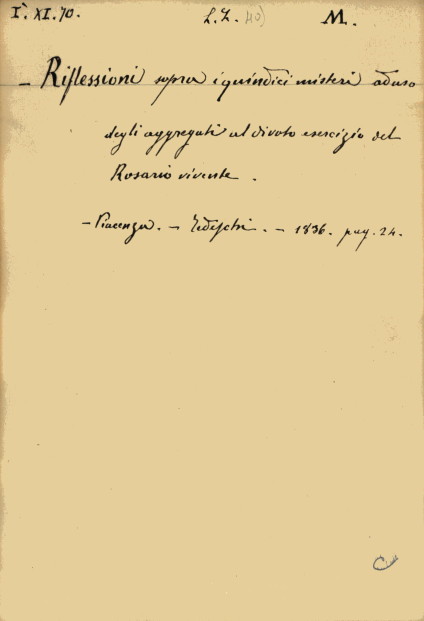 I. XI. 70. L. Z. 40) M.
– Riflessioni sopra i quindici misteri ad uso
degli aggregati al divoto esercizio del
Rosario vivente.
– Piacenza. – Tedeschi. – 1836. pag. 24.